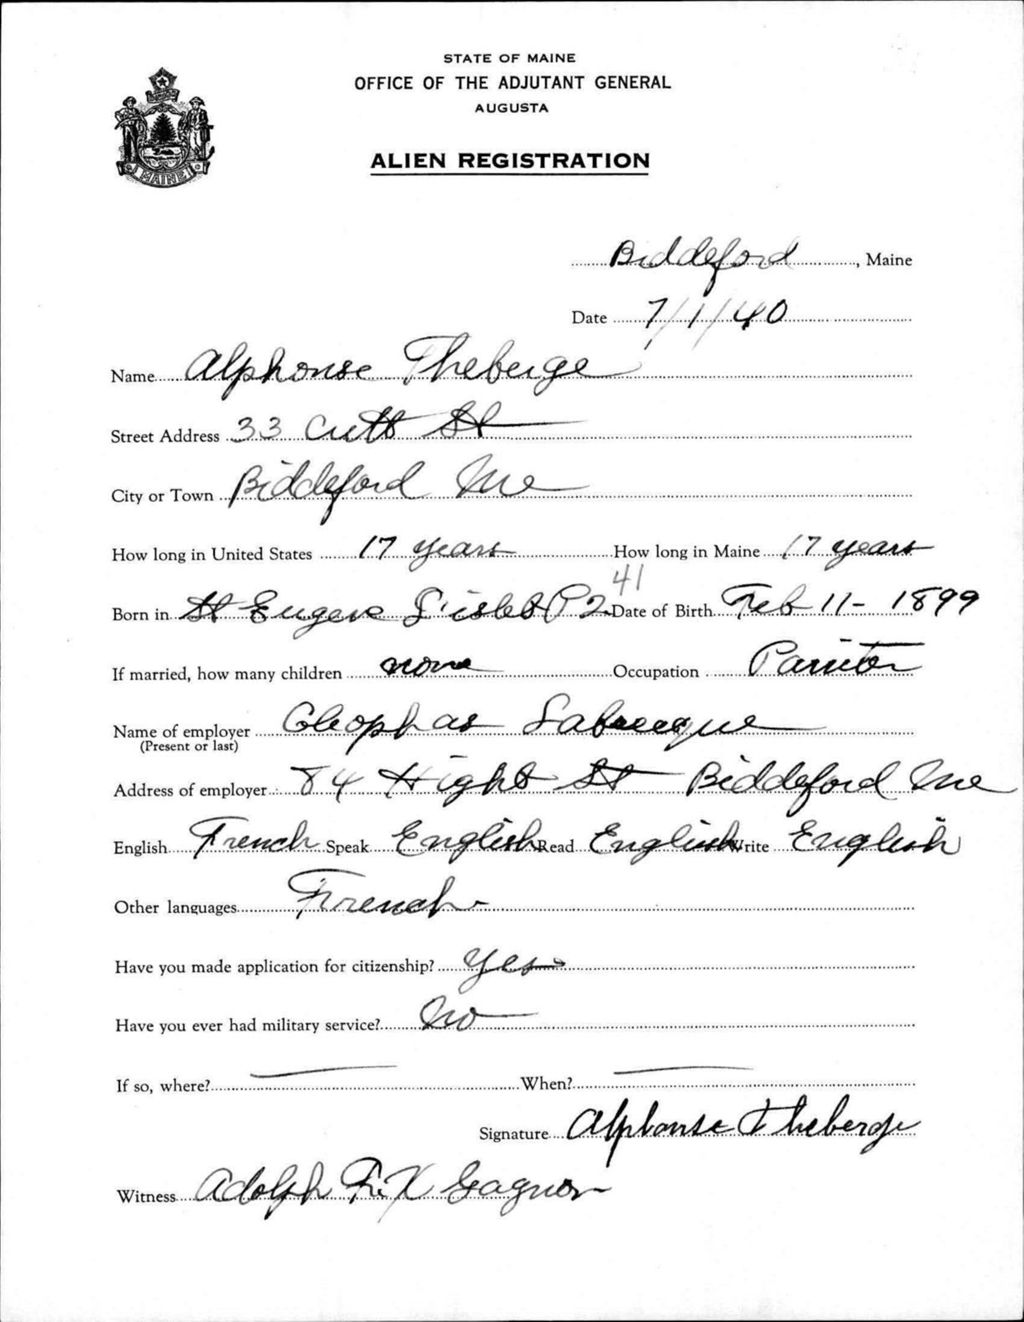 STATE OF MAINE
OFFICE OF THE ADJUTANT GENERAL
AUGUSTA
ALIEN REGISTRATION
MAINE
Biddeford, Maine
Date 7/1/40
Name Alphonse Theberge
Street Address 33 Cutts St
City or Town Biddeford Me
How long in United States 17 years How long in Maine 17 years
41
Born in St Eugene L'islet P2 Date of Birth Feb 11 - 1899
If married, how many children none Occupation
Name of employer Cleophas Labrecque
(Present or last)
Address of employer 84 Hight St Biddeford Me
English French Speak English Read English Write English
Other languages French -
Have you made application for citizenship? Yes
Have you ever had military service? No
If so, where? — When? —
Signature Alphonse Theberge
Witness Adolph F. X Gagnon